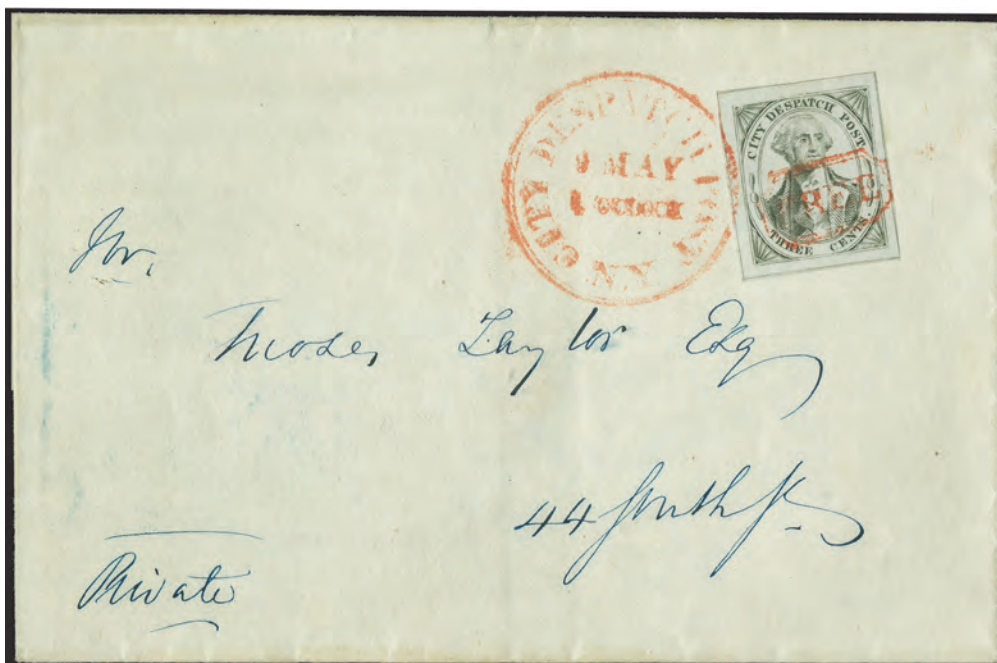 CITY DESPATCH POST N.Y.
9 MAY
4 O'CLOCK
CITY DESPATCH POST
FREE
THREE CENTS.
for,
Moses Taylor Esq
44 South St
Private